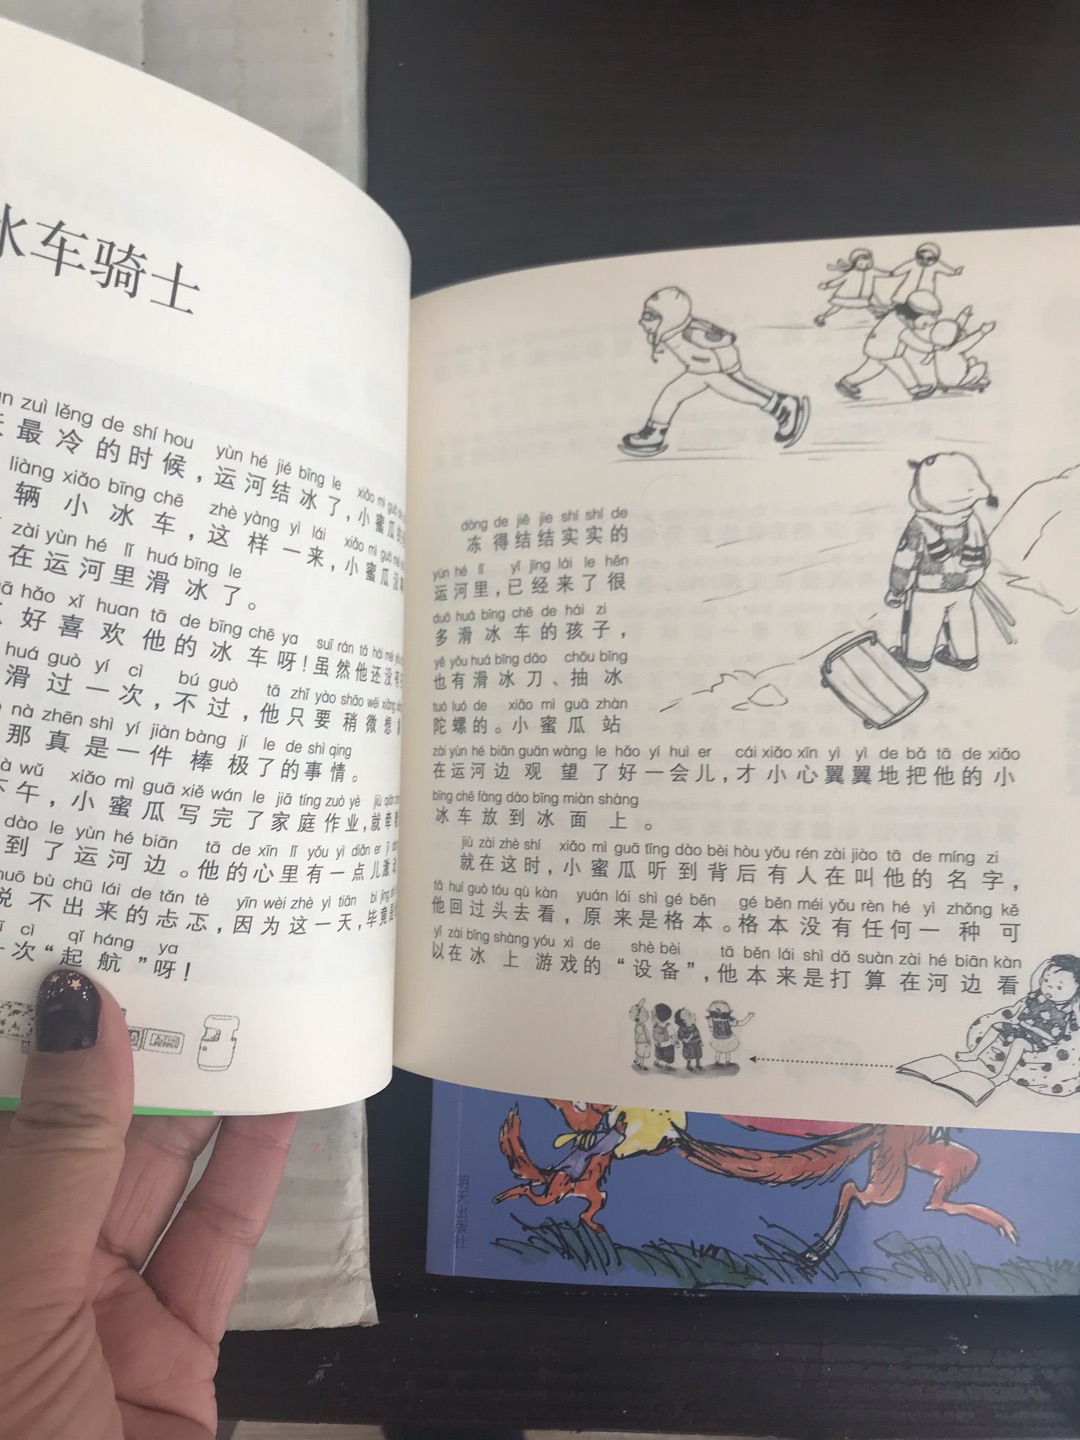 冰车骑士
zuì lěng de shí hou yùn hé jié bīng le
最冷的时候，运河结冰了，小蜜瓜
liàng xiǎo bīng chē zhè yàng yì lái
辆小冰车，这样一来，小蜜瓜没
zài yùn hé lǐ huá bīng le
在运河里滑冰了。
hǎo xǐ huan tā de bīng chē ya suī rán tā hái méi
好喜欢他的冰车呀！虽然他还没有
huá guò yí cì bú guò tā zhǐ yào shāo wēi xiǎng
滑过一次，不过，他只要稍微想
nà zhēn shì yí jiàn bàng jí le de shì qing
那真是一件棒极了的事情。
wǔ xiǎo mì guā xiě wán le jiā tíng zuò yè
下午，小蜜瓜写完了家庭作业，就牵
dào le yùn hé biān tā de xīn lǐ yǒu yì diǎn er
到了运河边。他的心里有一点儿激
shuō bù chū lái de tǎn tè yīn wèi zhè yì tiān bì jìng
说不出来的忐忑，因为这一天，毕竟
cì qǐ háng ya
一次“起航”呀！
dòng de jiē jie shí shí de
冻得结结实实的
yùn hé lǐ yǐ jīng lái le hěn
运河里，已经来了很
duō huá bīng chē de hái zi
多滑冰车的孩子，
yě yǒu huá bīng dāo chōu bīng
也有滑冰刀、抽冰
tuó luó de xiǎo mì guā zhàn
陀螺的。小蜜瓜站
zài yùn hé biān guān wàng le hǎo yí huì er cái xiǎo xīn yì yì de bǎ tā de xiǎo
在运河边观望了好一会儿，才小心翼翼地把他的小
bīng chē fàng dào bīng miàn shàng
冰车放到冰面上。
jiù zài zhè shí xiǎo mì guā tīng dào bèi hòu yǒu rén zài jiào tā de míng zi
就在这时，小蜜瓜听到背后有人在叫他的名字，
tā huí guò tóu qù kàn yuán lái shì gé běn gé běn méi yǒu rèn hé yì zhǒng kě
他回过头去看，原来是格本。格本没有任何一种可
yǐ zài bīng shàng yóu xì de shè bèi tā běn lái shì dǎ suàn zài hé biān kàn
以在冰上游戏的“设备”，他本来是打算在河边看
明天出版社